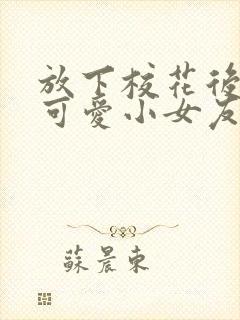 放下校花後
可愛小女友
蘇晨東